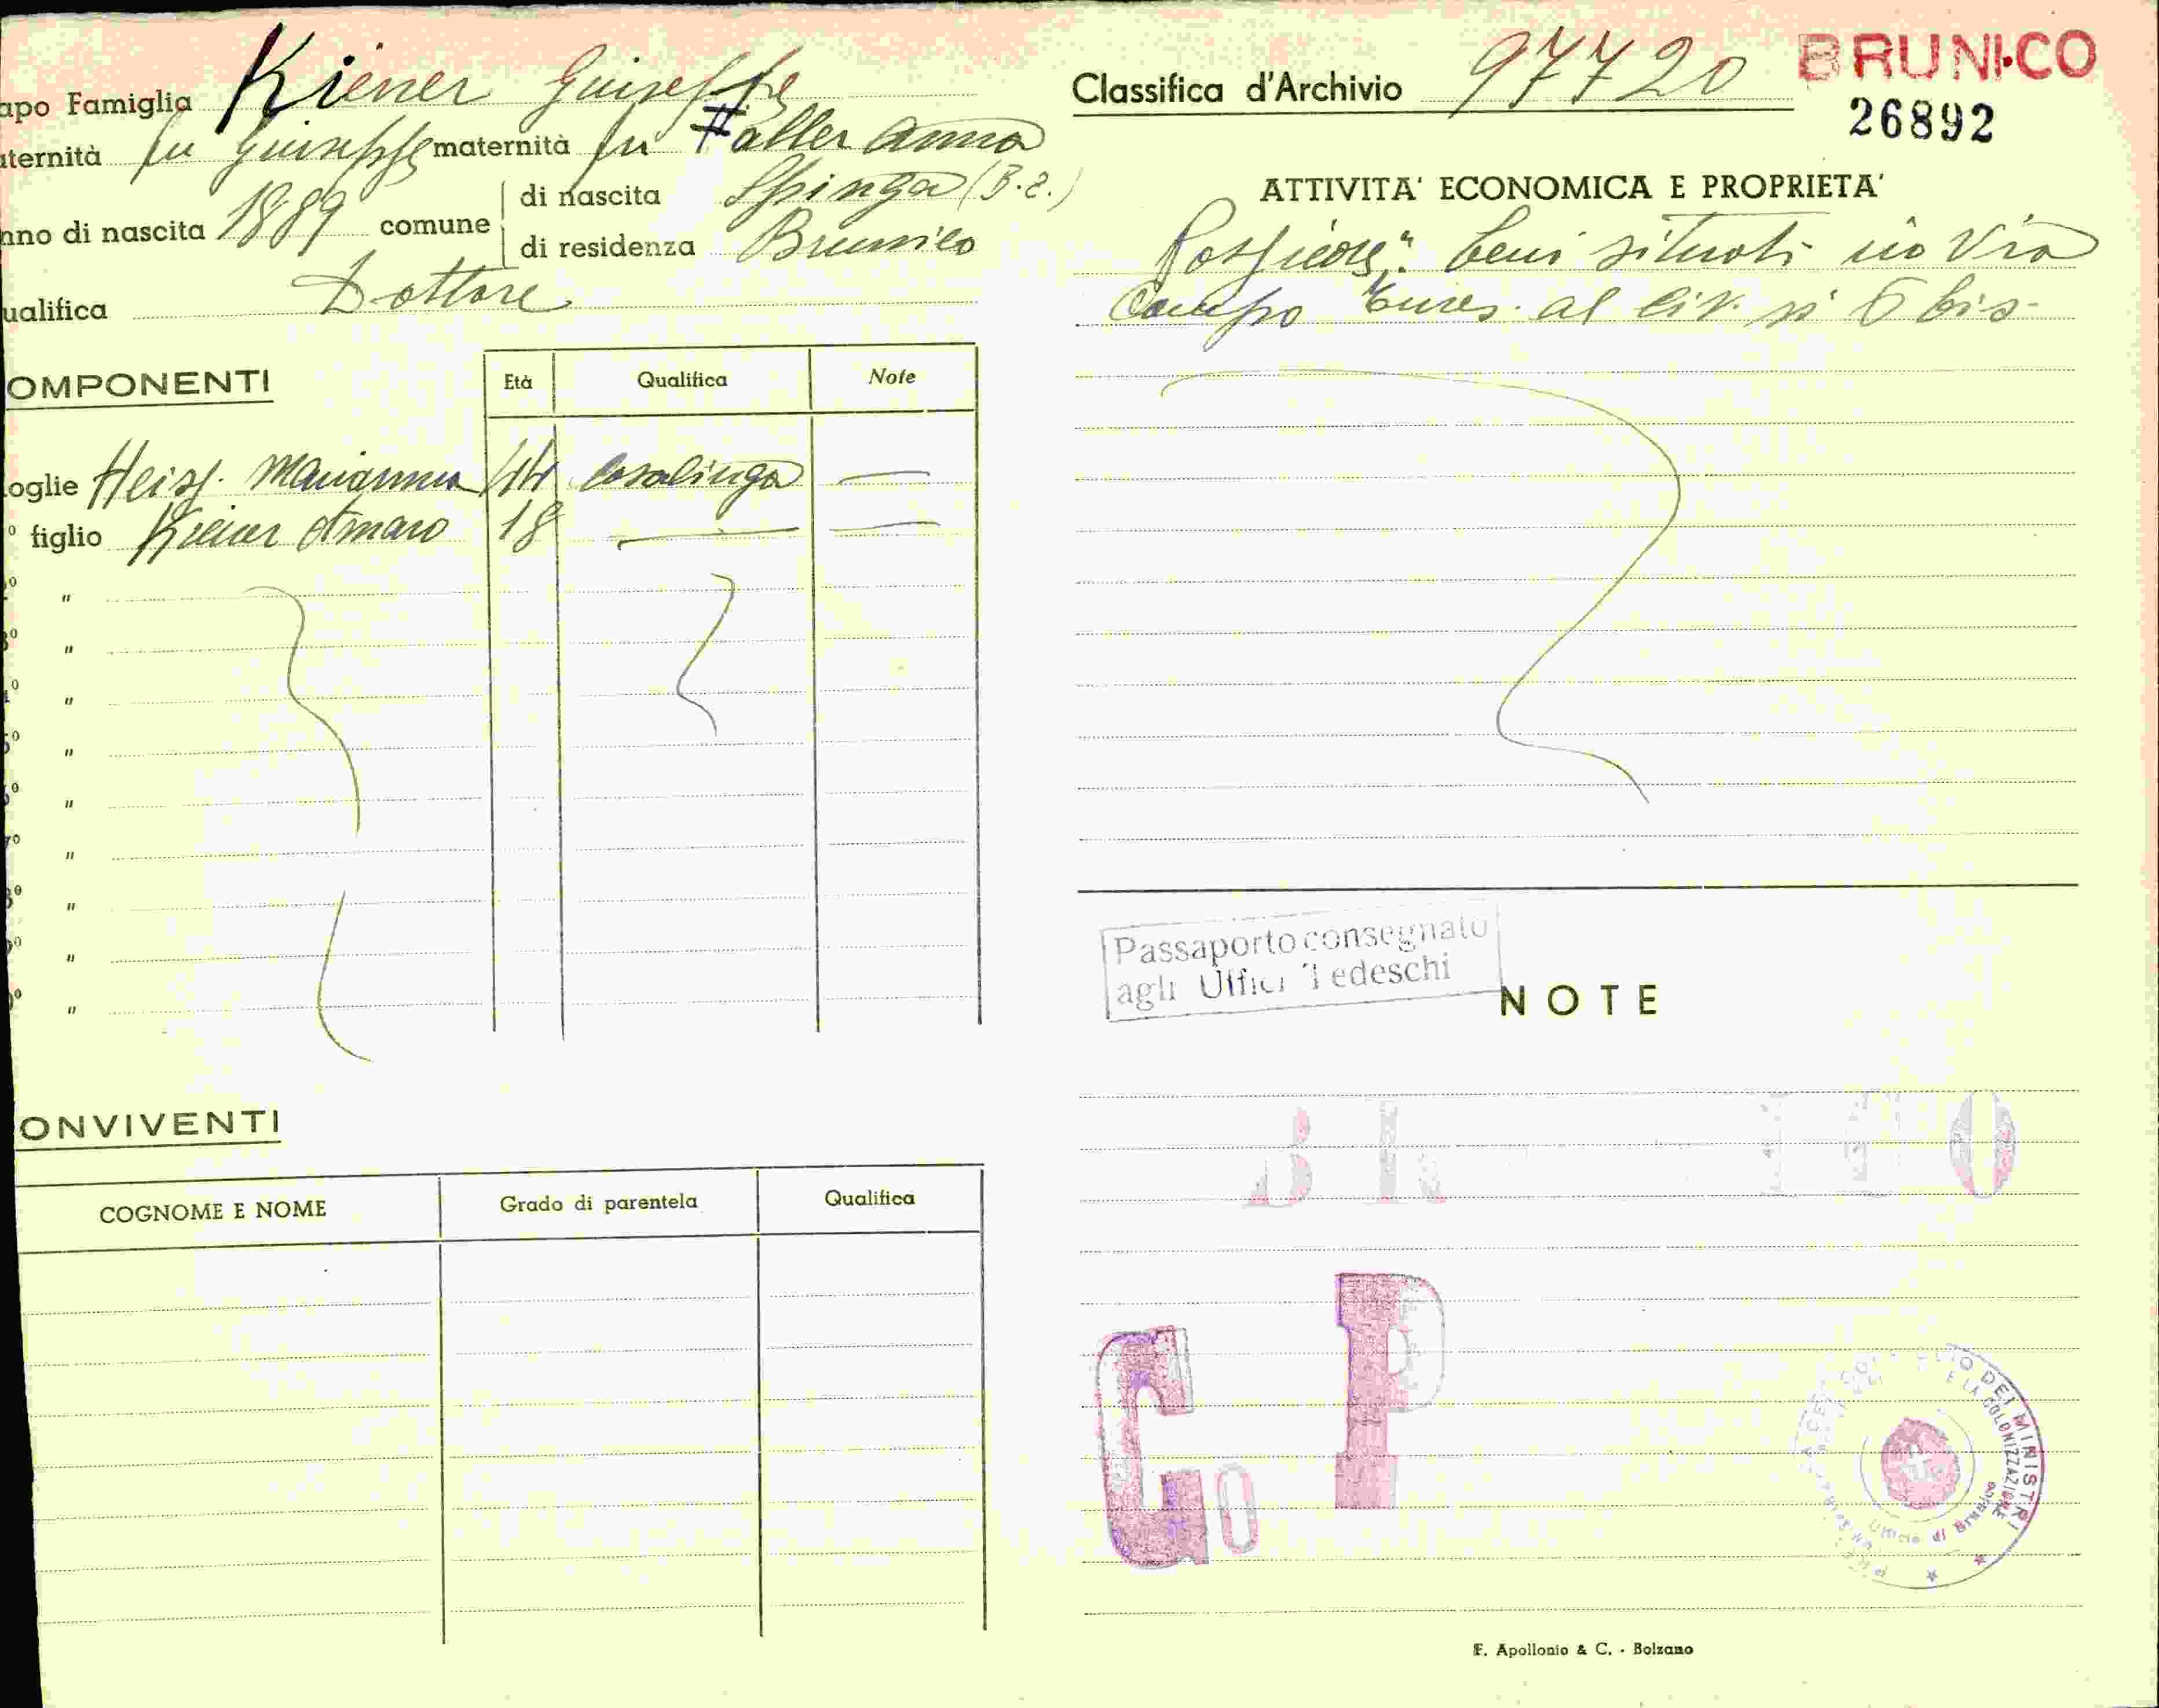 apo Famiglia Kiener Giuseppe
aternità fu Giuseppe maternità fu Faller Anna
nno di nascita 1889 comune di nascita Spinga (B.z.)
di residenza Brunico
ualifica Dottore
OMPONENTI Età Qualifica Note
oglie Heiss Marianna 44 Casalinga —
º figlio Kiener Amaro 18 — —
º "
3º "
4º "
5º "
6º "
7º "
8º "
9º "
0º "
ONVIVENTI
COGNOME E NOME Grado di parentela Qualifica
Classifica d'Archivio 97720
BRUNICO
26892
ATTIVITA' ECONOMICA E PROPRIETA'
beni situati in Via
Campo Tures al civ. nº 6 bis
Passaporto consegnato
agli Uffici Tedeschi
NOTE
Co P
DEI MINISTRI
E LA COLONIZZAZIONE
Ufficio di Brunico
F. Apollonio & C. - Bolzano